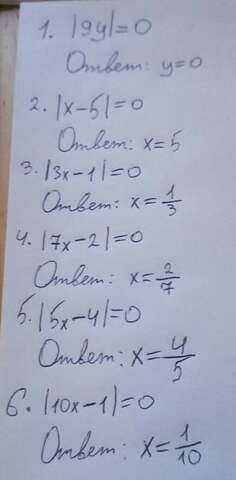 1. |9y|=0
Ответ: y=0
2. |x-5|=0
Ответ: x=5
3. |3x-1|=0
Ответ: x=1/3
4. |7x-2|=0
Ответ: x=2/7
5. |5x-4|=0
Ответ: x=4/5
6. |10x-1|=0
Ответ: x=1/10